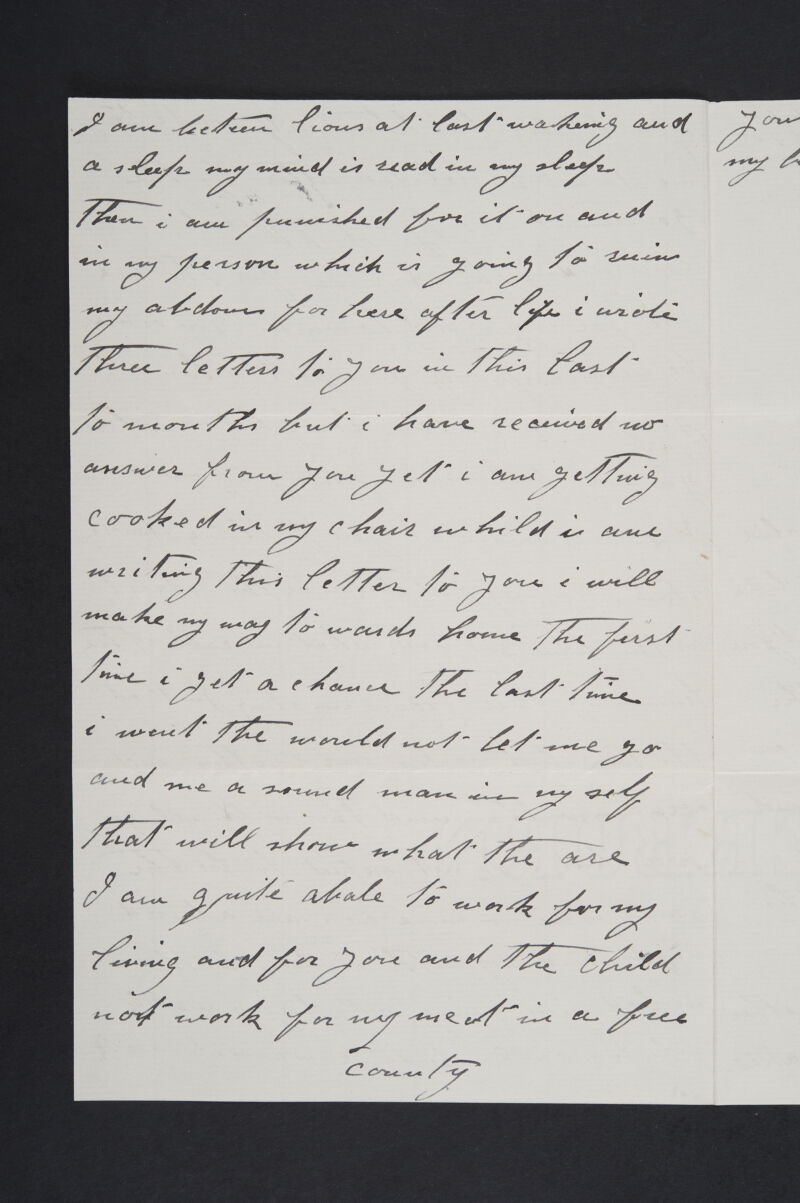 I am beteen lions at last wakeing and
a sleep my mind is read in my sleep
then i am punished for it on and
in my person which is going to ruin
my abdoms for here after life i wrote
three letters to you in this last
to months but i have received no
answer from you yet i am getting
cooked in my chair whild i am
writing this letter to you i will
make my way to wards home the first
time i get a chance the last time
i went the would not let me go
and me a sound man in my self
that will show what the are
I am quite abale to work for my
living and for you and the child
not work for my meat in a free
county
you
my